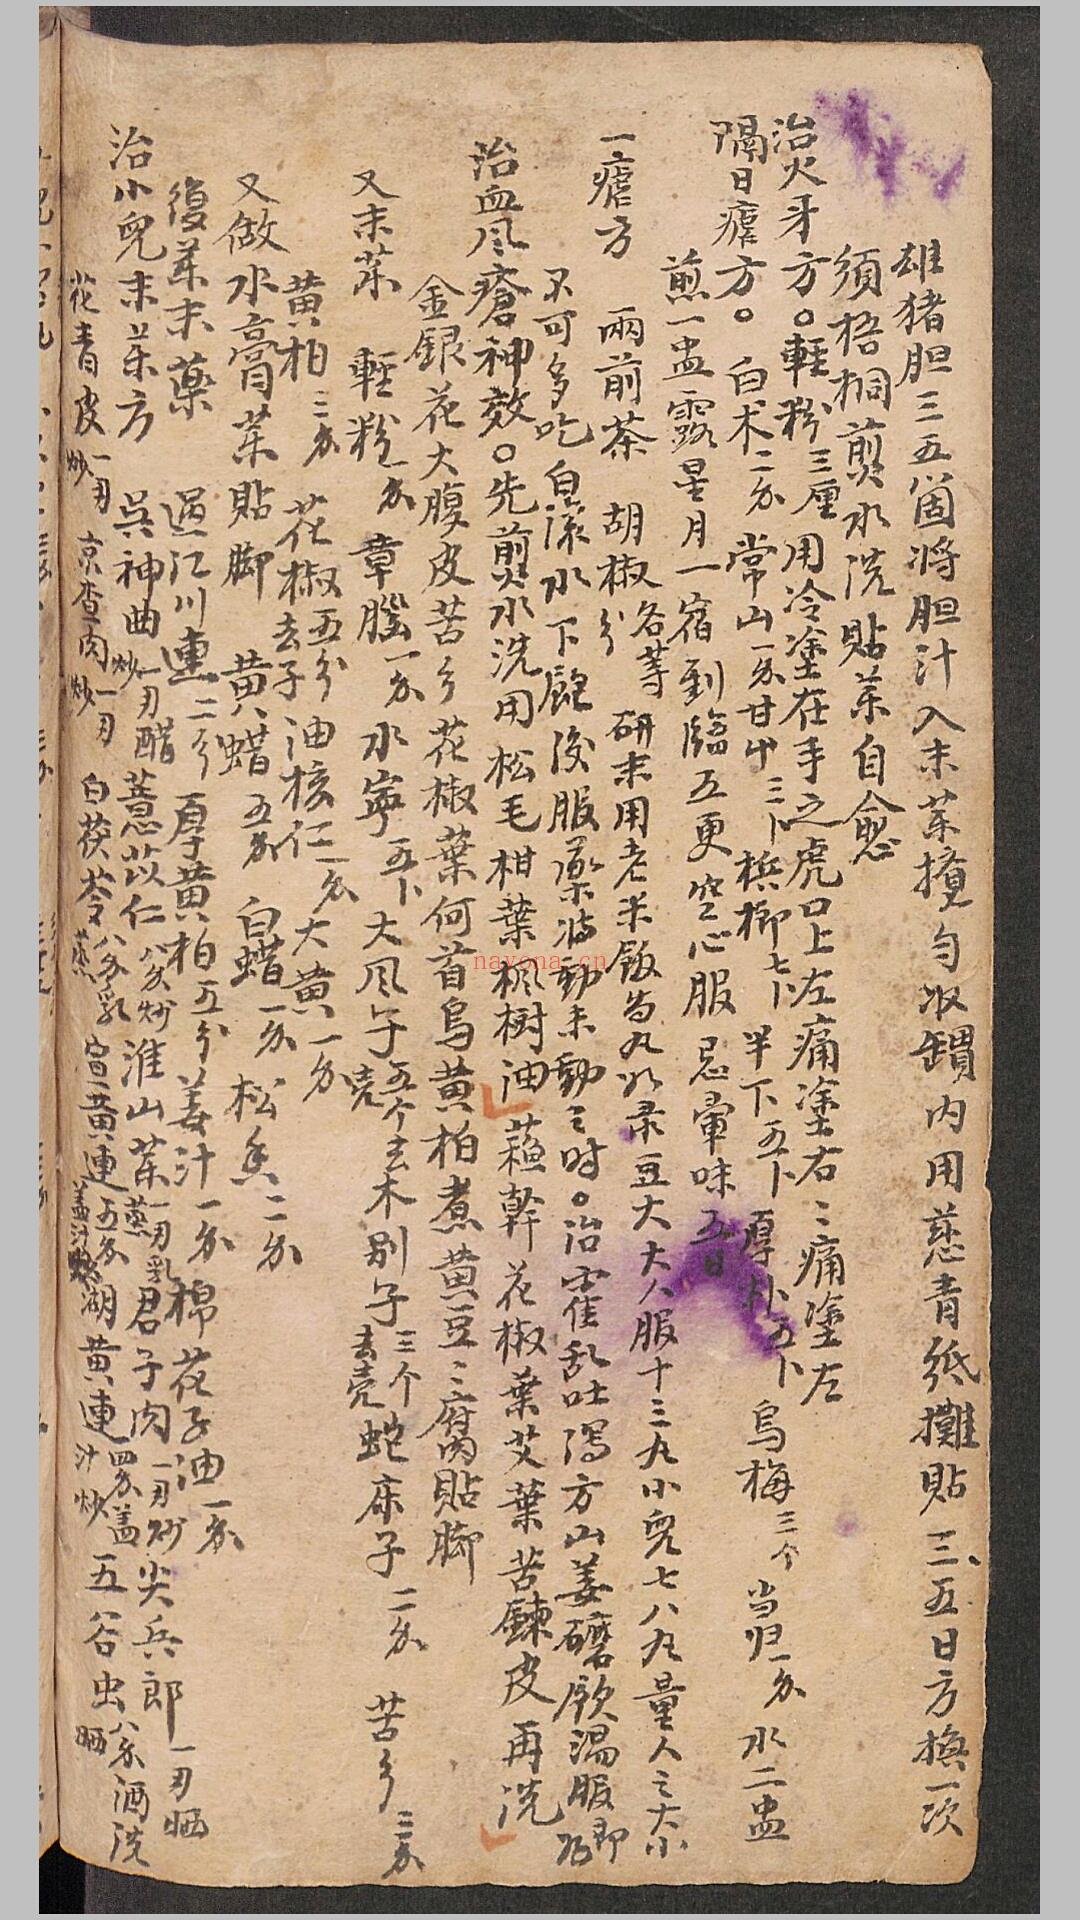 雄猪胆三五箇将胆汁入末茱攪匀収罐内用慈青紙攤貼三五日方換一次
須梧桐煎水洗貼茱自愈
治火牙方。輕粉三厘用冷塗在手之虎口上左痛塗右〻痛塗左
隔日瘧方。白术二分常山一分甘中三卜梹榔七卜半下五卜厚朴五卜烏梅三个当归一分水二盅
煎一盅露星月一宿到臨五更空心服忌暈味五日
一瘧方 兩前茶 胡椒各等分 研末用老米飯為丸如彔豆大大人服十三丸小兒七八丸量人之大小
不可多吃自滚水下飽後服藥将動未動之时。治霍乱吐瀉方山姜磨飲温服即
治血风瘡神效。先煎水洗用松毛柑葉楓樹油蘓幹花椒葉艾葉苦鍊皮再洗
金銀花大腹皮苦参花椒葉何首烏黄柏煮黄豆〻腐貼脚
又末茱 輕粉一分章腦一分水寧五卜大风子五个去壳木别子三个去壳蛇床子二分苦参三分
黄柏三分花椒五分去子油核仁一分大黄一分
又做水膏茱貼脚 黄蜡五分白蜡一分松香二分
復茱末藥 過江川連二分厚黄柏五分姜汁一分棉花子油一分
治小兒末茱方 吴神曲一刃炒醋薏苡仁八分炒淮山茱一刃乳蒸君子肉一刃炒尖兵郎一刃晒
花青皮一刃炒京查肉一刃炒白茯苓八分乳蒸宣黄連五分盖汁炒湖黄連四分盖汁炒五谷虫八分酒洗晒
nayona.cn